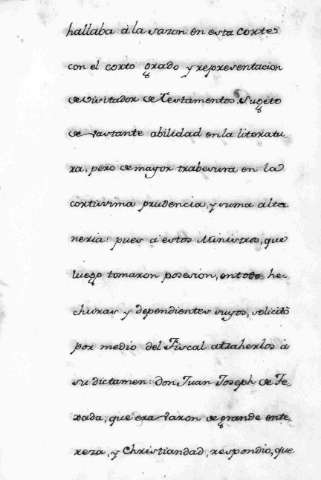 hallaba à la sazon en esta Cortes
con el corto grado y representacion
de visitador de Testamentos, Sugeto
de vastante abilidad en la literatu
ra, pero de mayor trabesura en la
cortissima prudencia, y suma alta
neria: pues à estos Ministros, que
luego tomaron posesion, en todo he
churas y dependientes suyos, solicitò
por medio del Fiscal atraherlos à
su dictamen: don Juan Joseph de Te
xada, que era Varon de grande ente
reza, y Christiandad, respondio, que